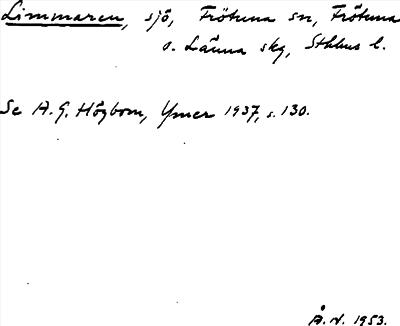 Limmaren, sjö, Frötuna sn, Frötuna
o. Länna skg, Sthlms l.
Se A. G. Högbom, Ymer 1937, s. 130.
Å. N. 1953.